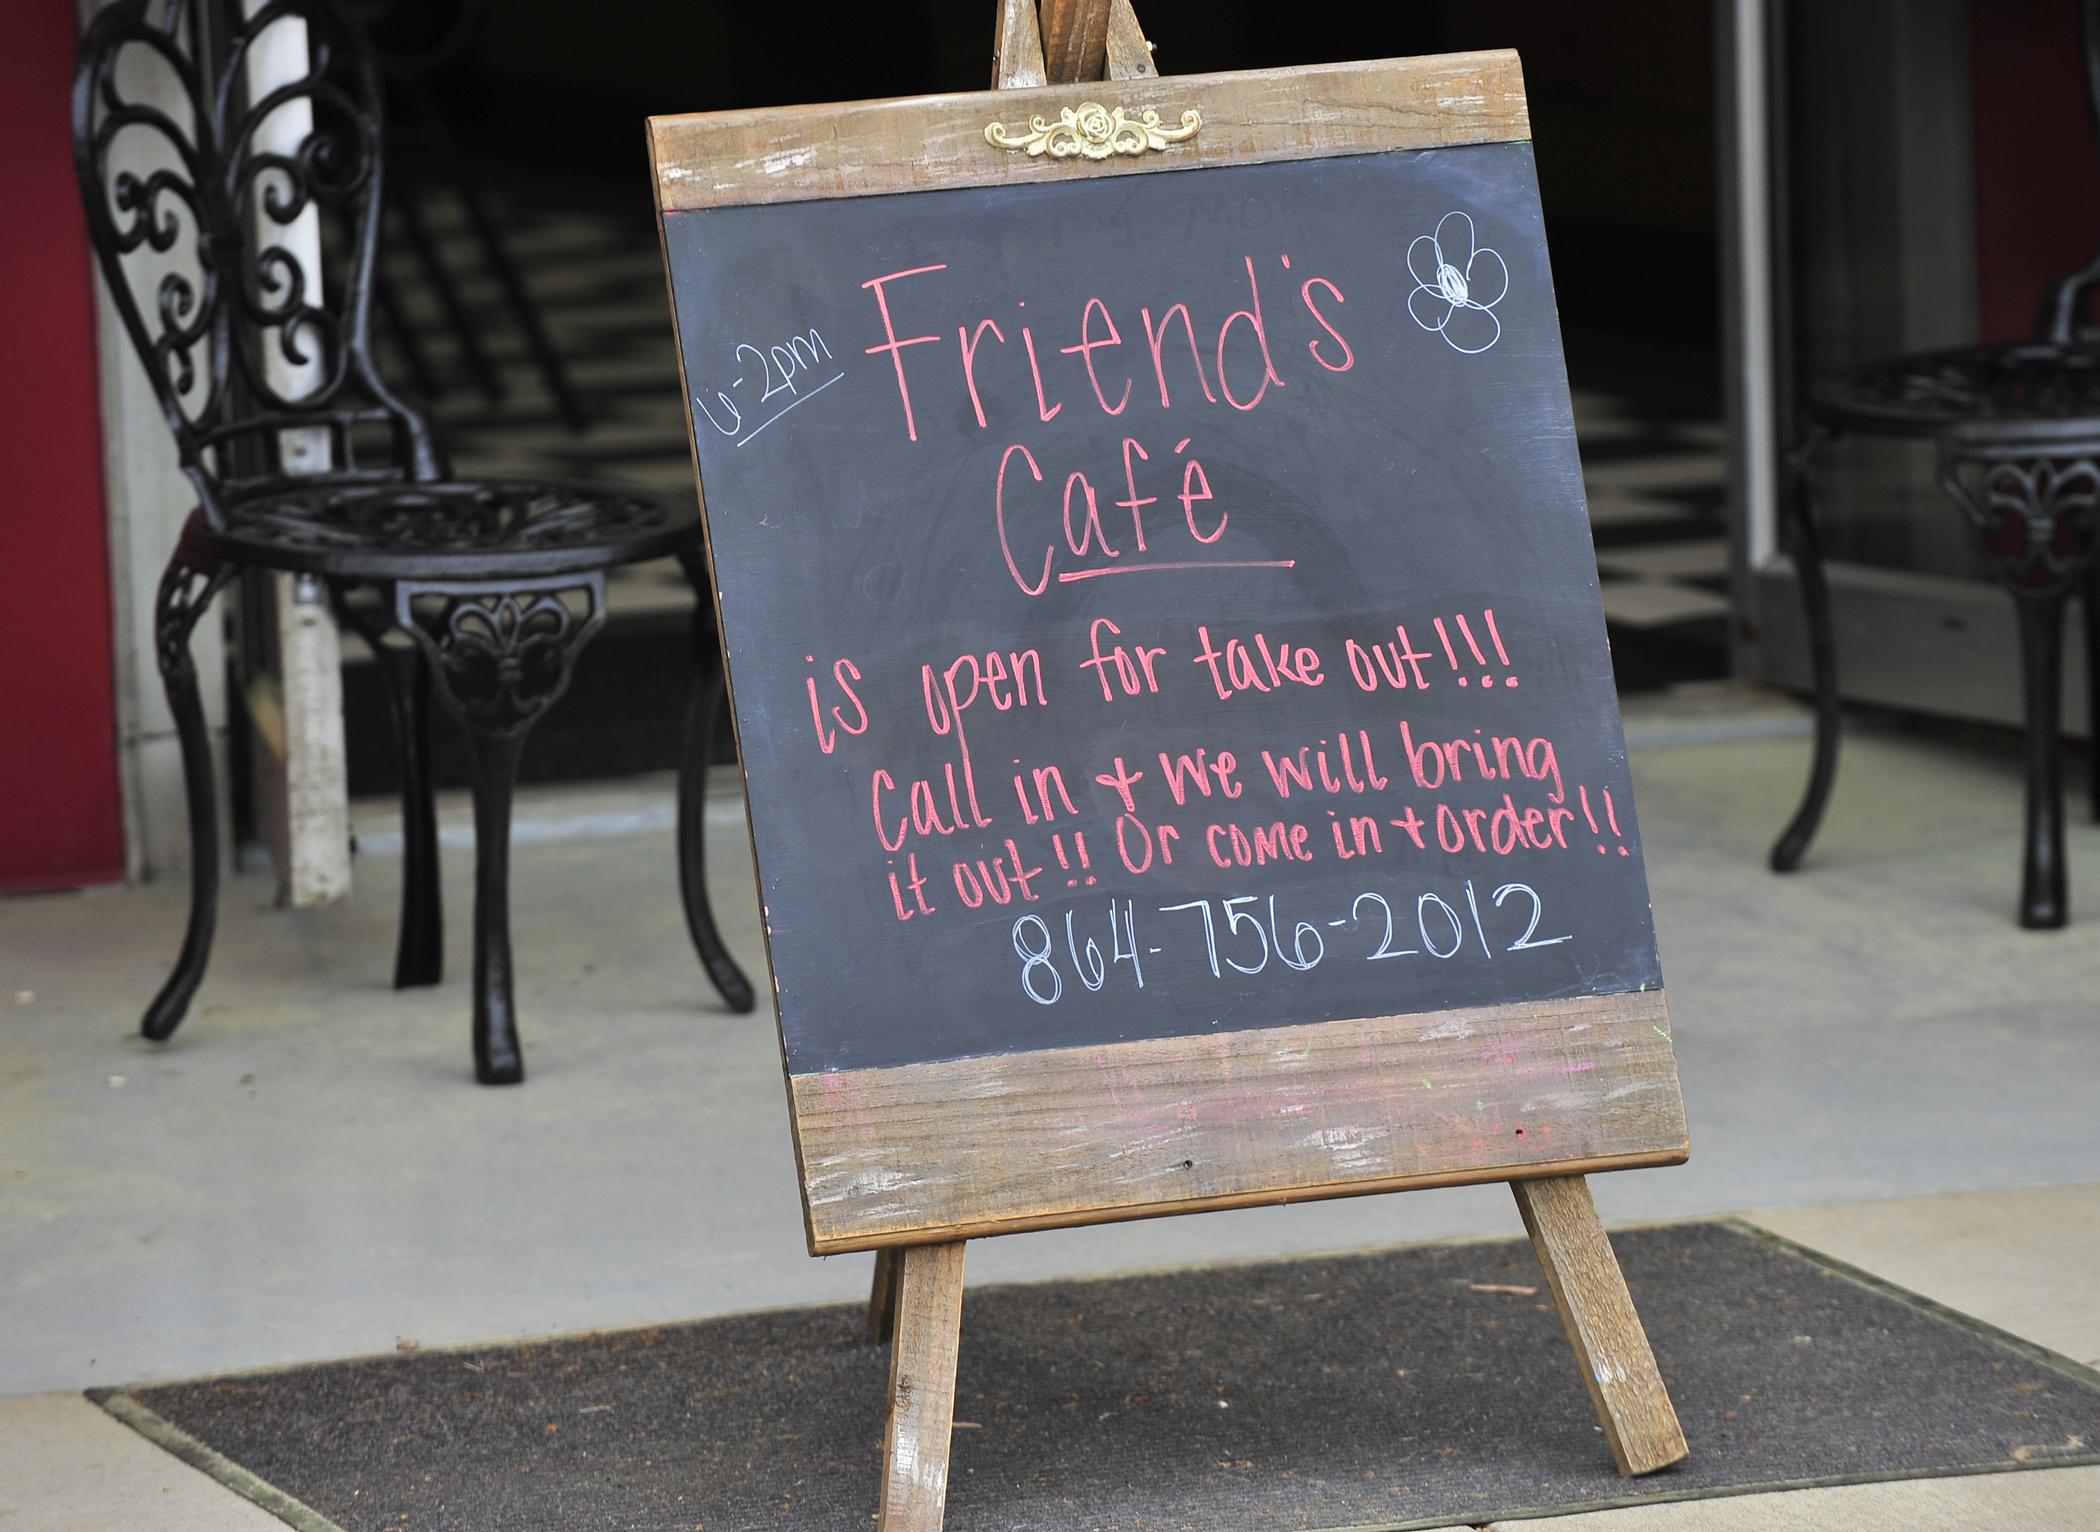 6-2pm
Friend's
Café
is open for take out!!!
Call in + we will bring
it out!! Or come in + order!!
864-756-2012